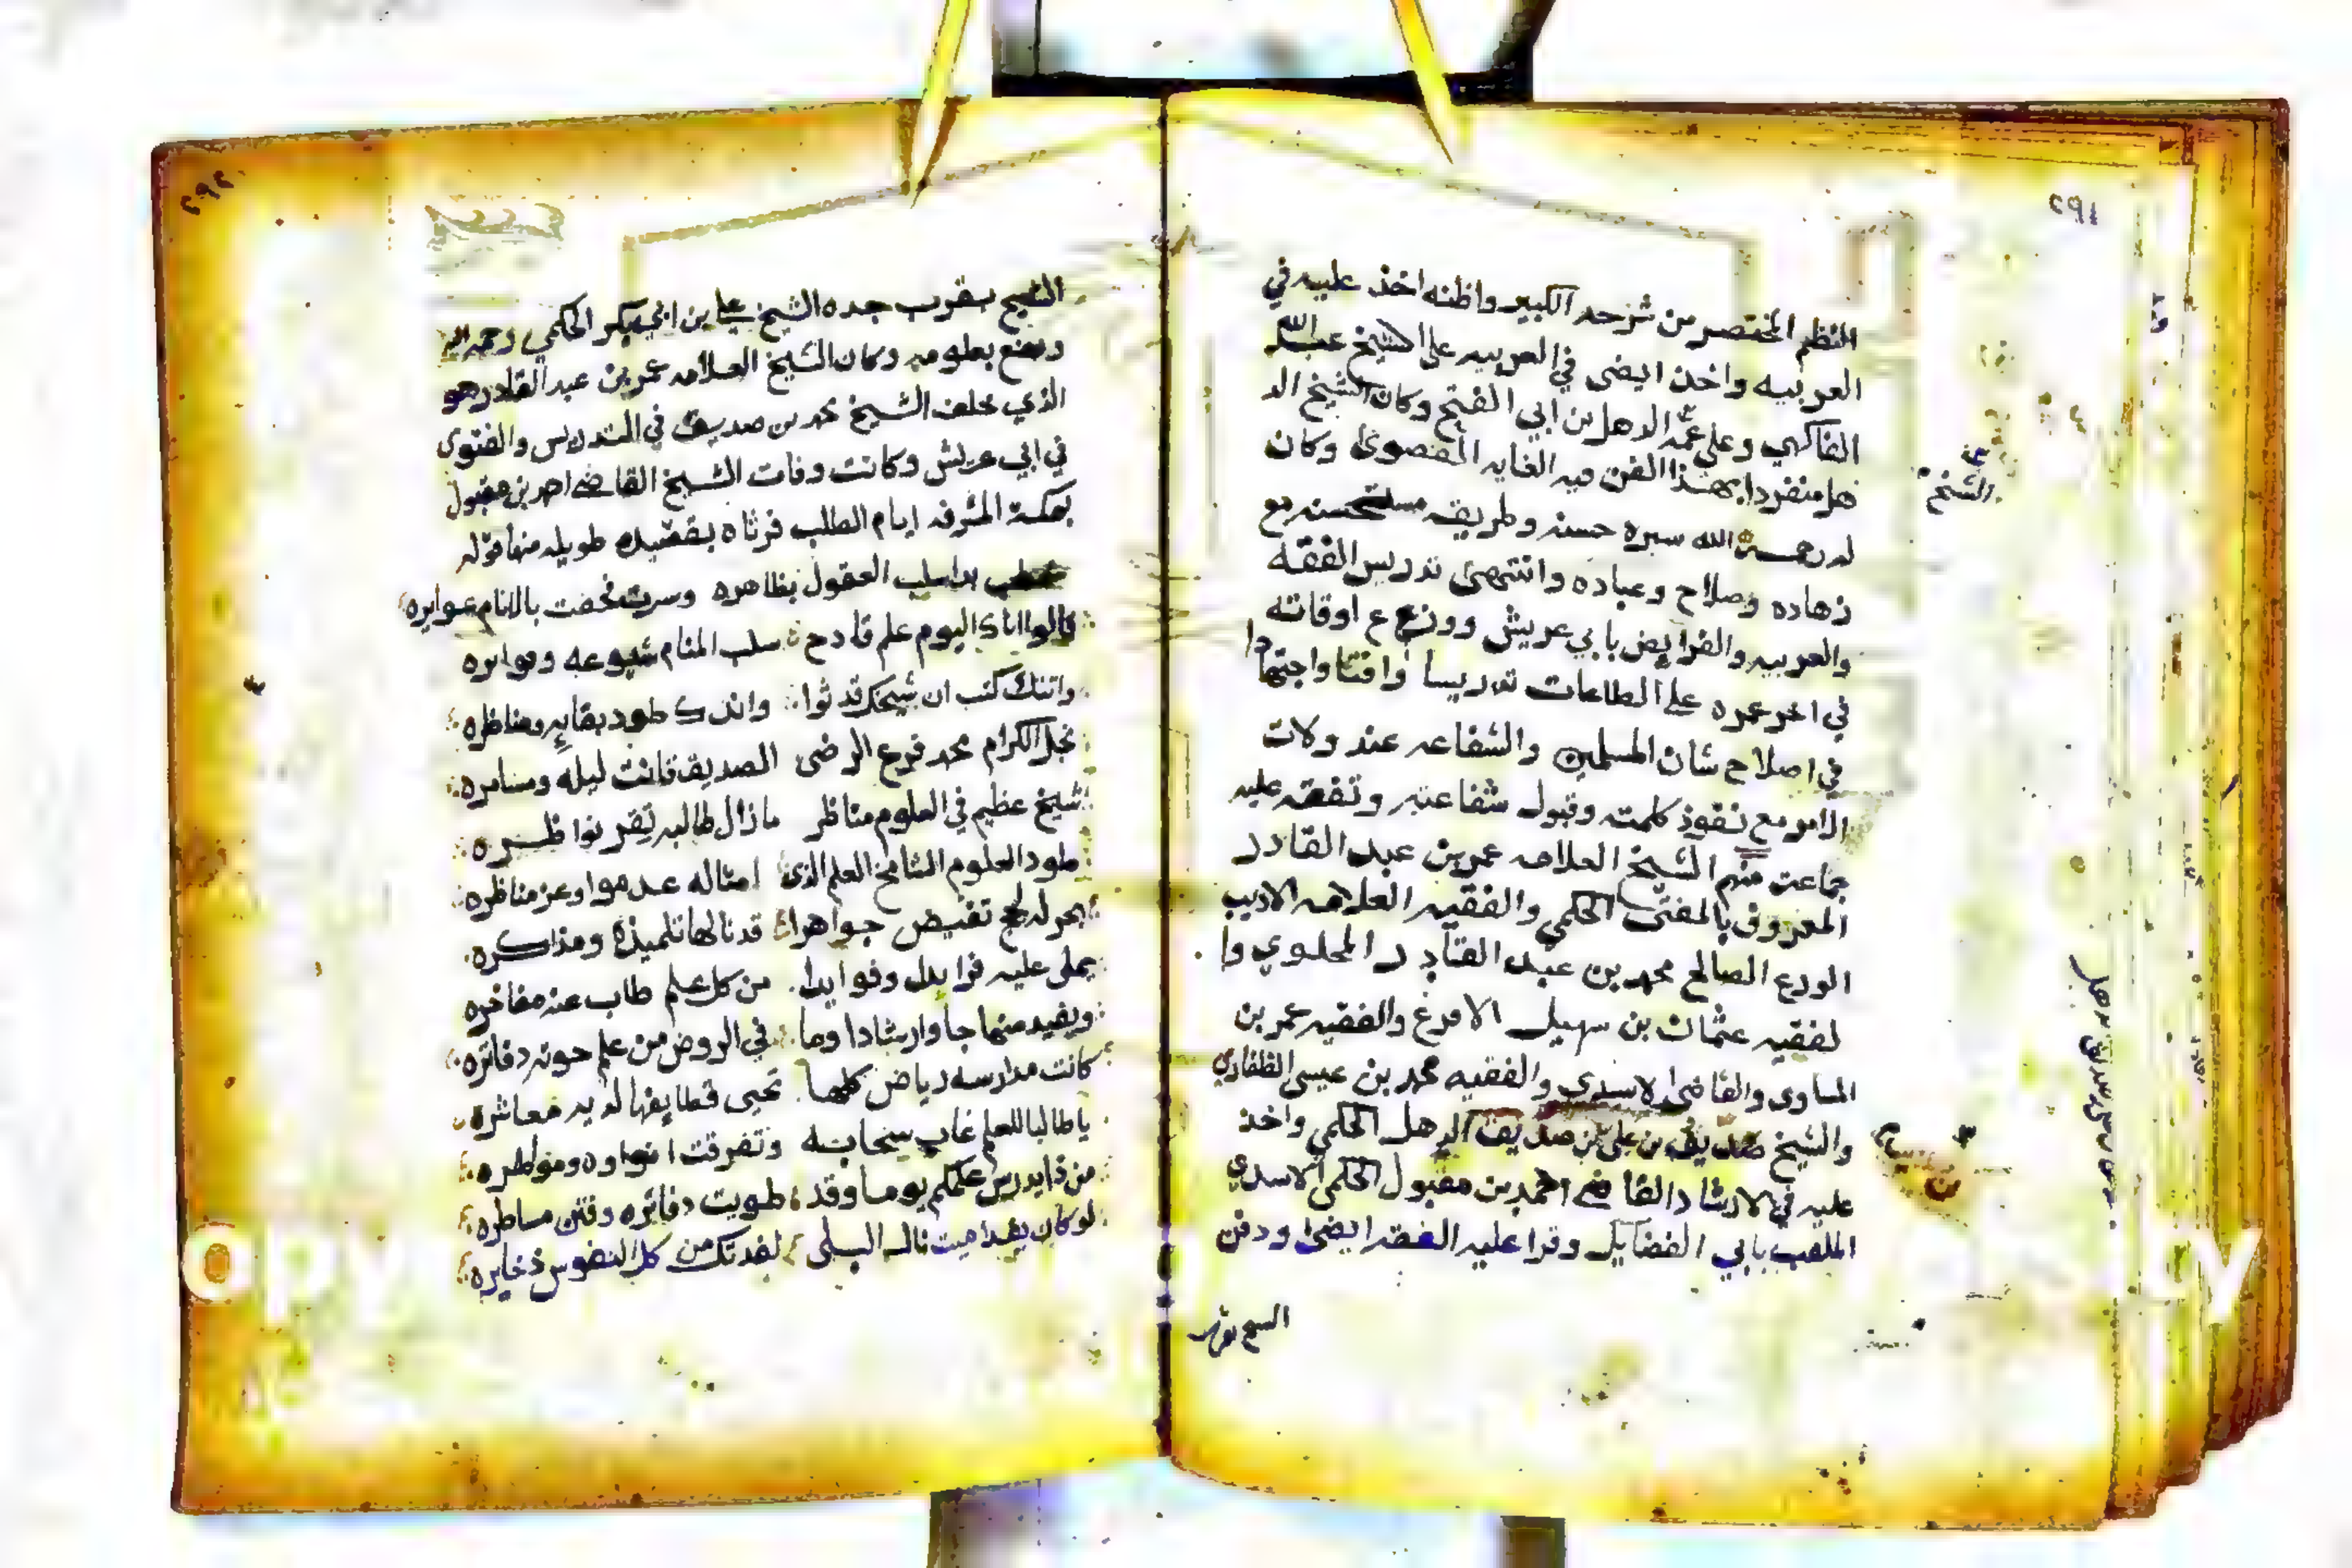 ٢٩١
النظم المختصر من شرحه الكبير واظنه اخذ عليه في
العربيه واخذ ايضى في العربيه على الشيخ عبدالله
الفاكهي وعلى عمه الدهل بن ابي الفتح وكان الشيخ الد
هل منفردا بهذا الفن فيه الغايه القصوى وكان
الشيخ
له رحمة الله سيره حسنه وطريقه مستحسنه مع
زهاده وصلاح وعباده وانتهى تدريس الفقه
والعربيه والفرايض بابي عريش ووزع اوقاته
في اخر عمره على الطاعات تدريسا وافتا واجتهادا
في اصلاح شان المسلمين والشفاعه عند ولات
الامر مع نفوذ كلمته وقبول شفاعته وتفقه عليه
جماعت منهم الشيخ العلامه عمر بن عبد القادر
المعروف بالمفتى الحكمي والفقيه العلامه الاديب
الورع الصالح محمد بن عبد القادر المحلوي وا
لفقيه عثمان بن سهيل الامرغ والفقيه عمر بن
المساوى والقاضى الاسدي والفقيه محمد بن عيسى الظفاري
والشيخ صديق بن على بن صديق الدهل الحكمي واخذ
عليه في الارشاد القاضي احمد بن مقبول الحكمي الاسدي
الملقب بابي الفضايل وقرا عليه الفقه ايضى ودفن
٢٩٢
الشيخ بقرب جده الشيخ علي بن ابي بكر الحكمي رحمه الله
ونفع بعلومه وكان الشيخ العلامه عمر بن عبد القادر هو
الذي خلف الشيخ محمد بن صديق في التدريس والفتوى
في ابي عريش وكانت وفات الشيخ القاضي احمد بن مقبول
بمكة المشرفه ايام الطلب فرثاه بقصيده طويله منها قوله
خطب بدا سلب العقول بظاهره وسرت فحفت بالانام عوايره
قالوا اتاك اليوم علم قادح سلب المنام شيوعه وموايره
واتتك كتب ان شيخك قد ثوا واندك طود بقايه ومناظره
نجل الكرام محمد فرع الرضى الصديق قانت ليله ومسامره
شيخ عظيم في العلوم مناظر مازال طالبه تقر نواظره
طود العلوم الشامخ العلم الذي امثاله عدموا وعز مناظره
بحر له لجج تفيض جواهرا قد نالها تلميذه ومذاكره
يملى عليه فرايدا وفوايدا من كل علم طاب عنه مفاخره
ويفيد منهاجا وارشادا وما في الروض من علم حوته دفاتره
كانت مدارسه رياض كلها تحيى قطايفها لديه معاشره
يا طالبا للعلم غاب سحابه وتفرقت انواوه ومواطره
من ذا يدرس علمكم يوما وقد طويت دفاتره وفتن مساطره
لو كان يفدا ميت نال البلى لفدتك من كل النفوس ذخايره